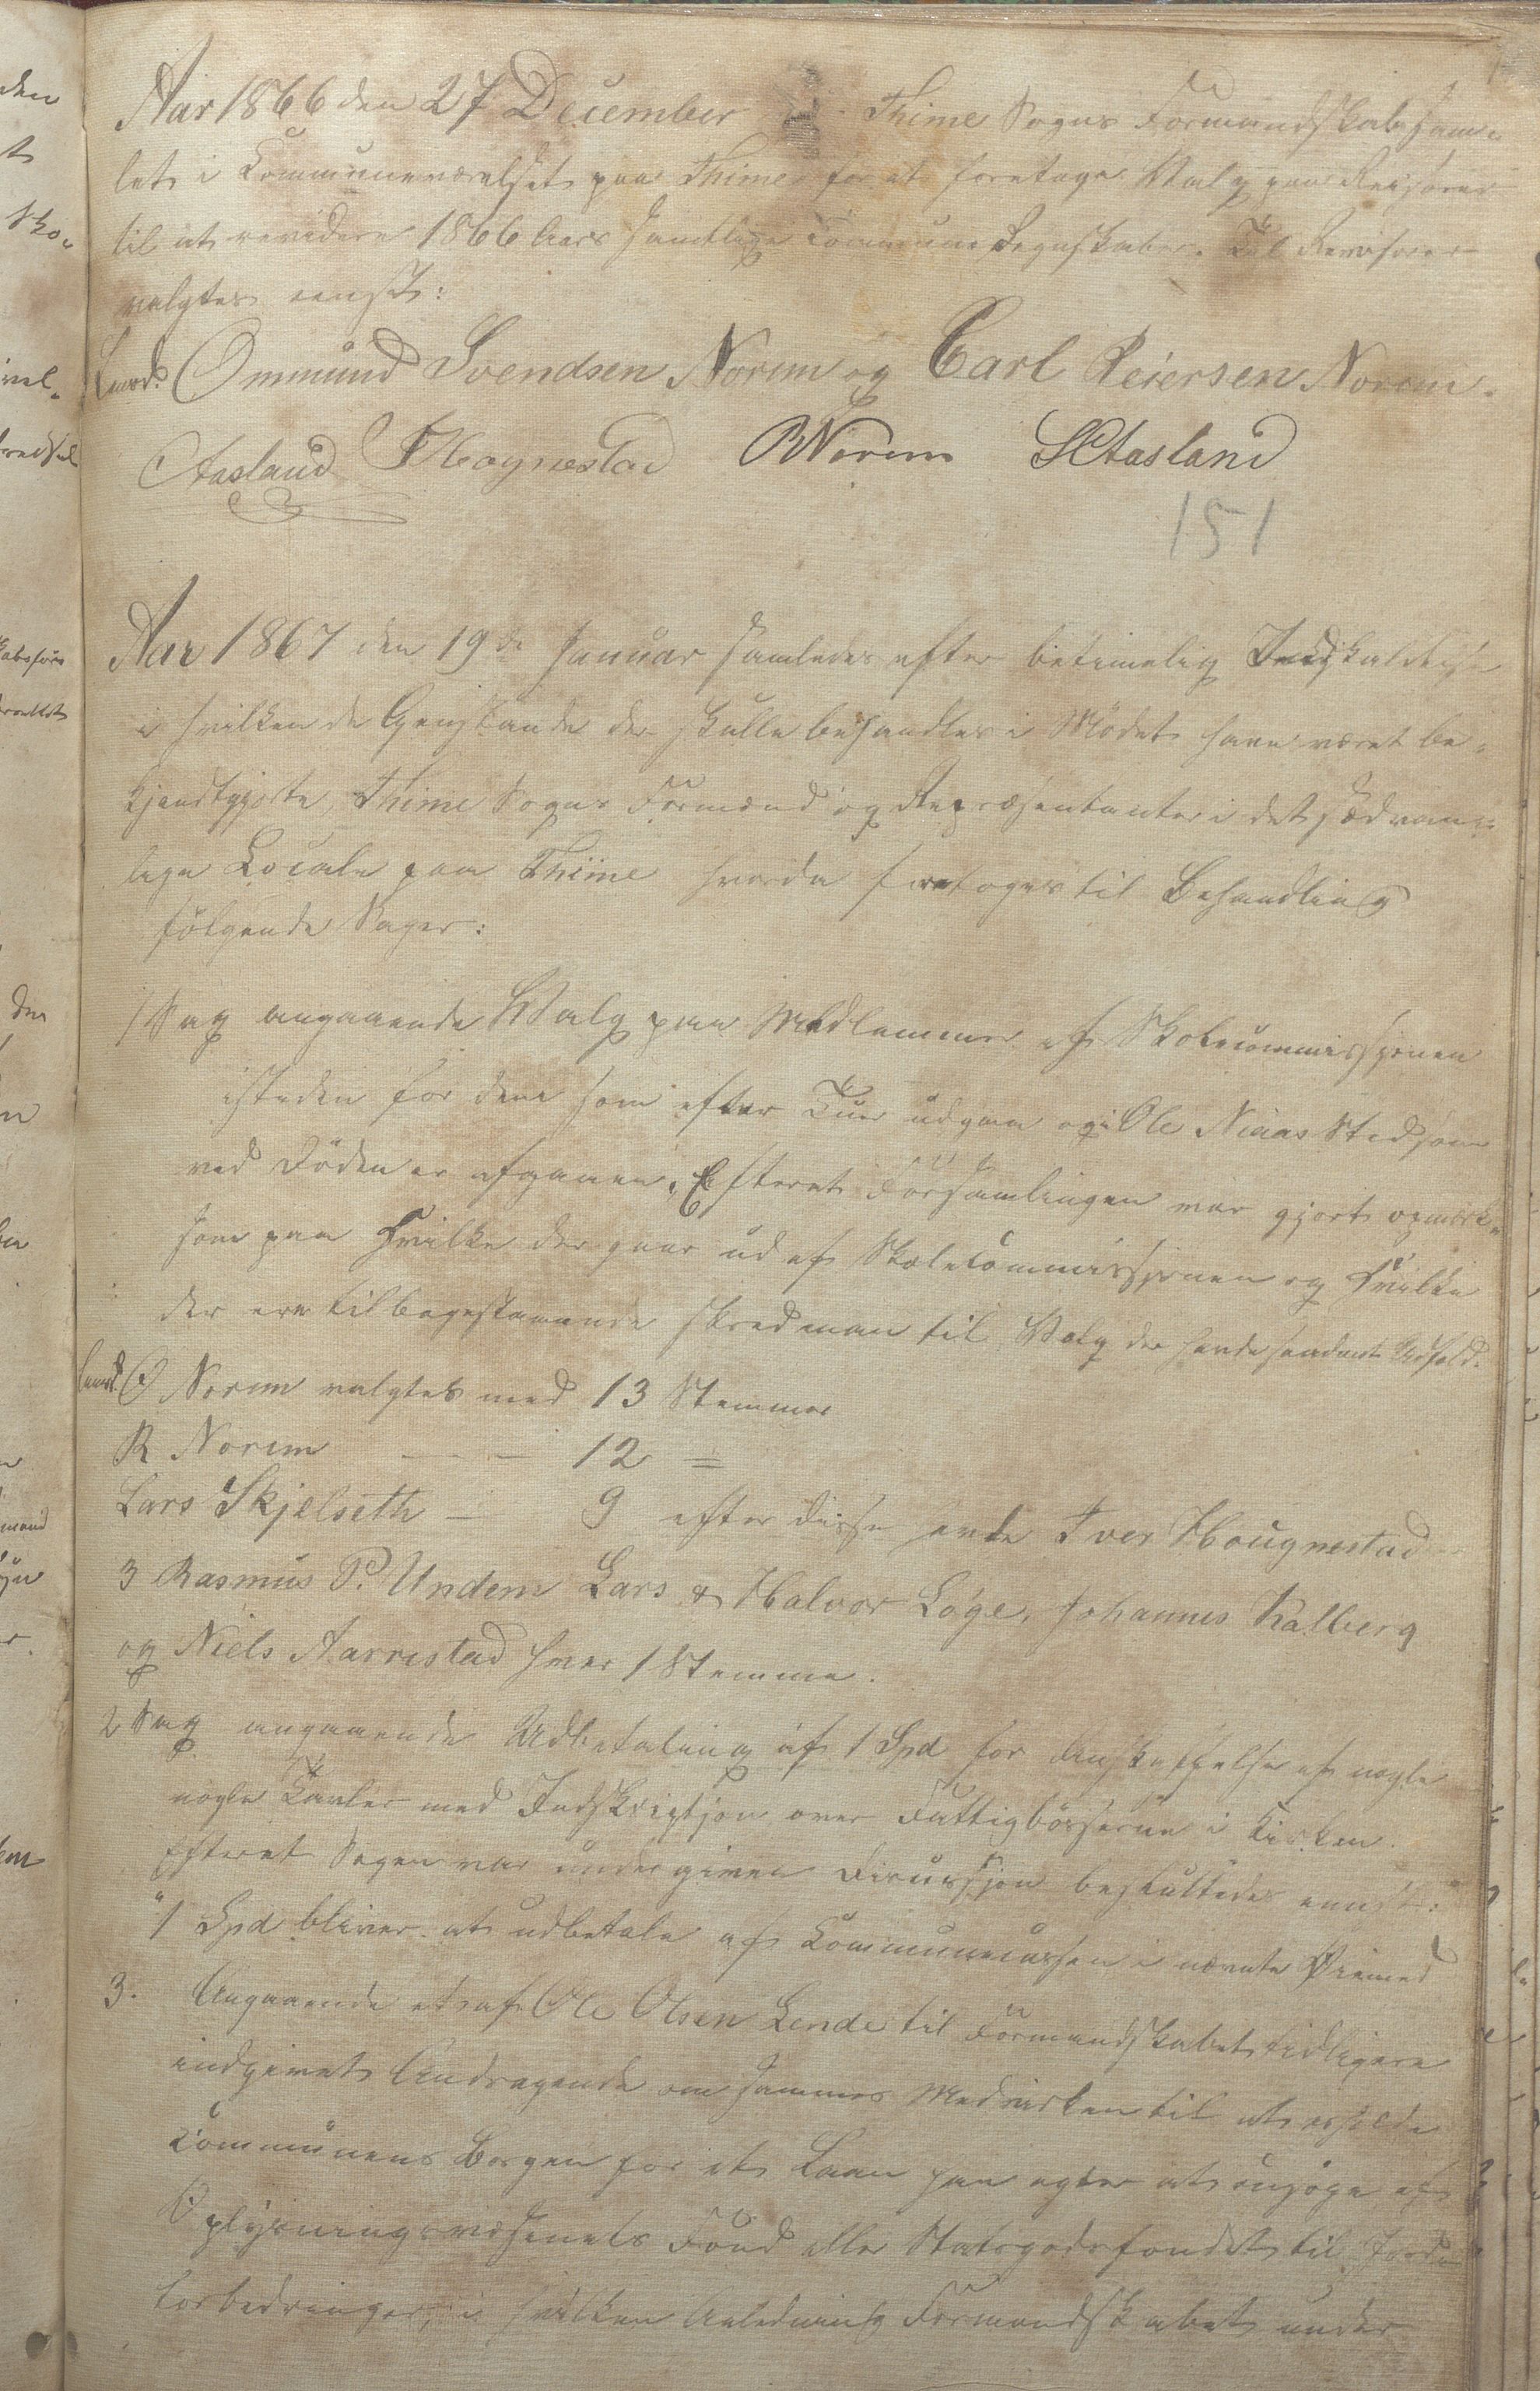 Aar 1866 den 27 December Thime Sogns Formandskab sam-
let i Communeværelset paa Thime for at foretage Valg paa Revisorer
til at revidere 1866 Aars samtlige Commune Regnskaber. Til Revisorer
valgtes eenst:
Lensmd. Ommund Svendsen Norem og Carl Reiersen Norem.
Aasland Hognestad RNorem SAasland
151
Aar 1867 den 19de Januar samledes efter betimelig Indkaldelse
i hvilken de Gjenstande der skulle behandles i Mødet have været be-
kjendtgjorte, Thime Sogns Formænd og Repræsentanter i det sædvan-
lige Locale paa Thime hvorda foretoges til Behandling
følgende Sager:
1 Sag angaaende Valg paa Medlemmer af Skolecommissjonen
isteden for dem som efter Tuur udgaa og i Ole Niaas Sted som
ved Døden er afgaaen. Efterat Forsamlingen var gjort opmærk-
som paa hvilke der gaar ud af Skolecommissjonen og hvilke
der ere tilbagestaaende skred man til Valg der havde saadant Udfald.
Lensmd. O Norem valgtes med 13 Stemmer
R Norem — — 12 =
Lars Skjelseth — 9 efter disse havde Iver Hougnestad
3 Rasmus P. Undem Lars & Halvor Løge, Johannes Kalberg
og Niels Aarrestad hver 1 Stemme.
2 Sag angaaende Udbetaling af 1 Spd for Anskaffelse af nogle
nogle Tavler med Indskriptjon over Fattigbøsserne i Kirken.
Efterat Sagen var undergiven Discussjon besluttedes eenst:
"1 Spd bliver at udbetale af Communecassen i nævnte Øiemed
3. Angaaende et af Ole Olsen Lende til Formandskabet tidligere
indgivet Andragende om sammes Medvirken til at erholde
Communens Borgen for et Laan han agter at ansøge af
Oplysningsvæsenets Fond eller Statsgodsfondet til Jord-
forbedringer, i hvilken Anledning Formandskabet under